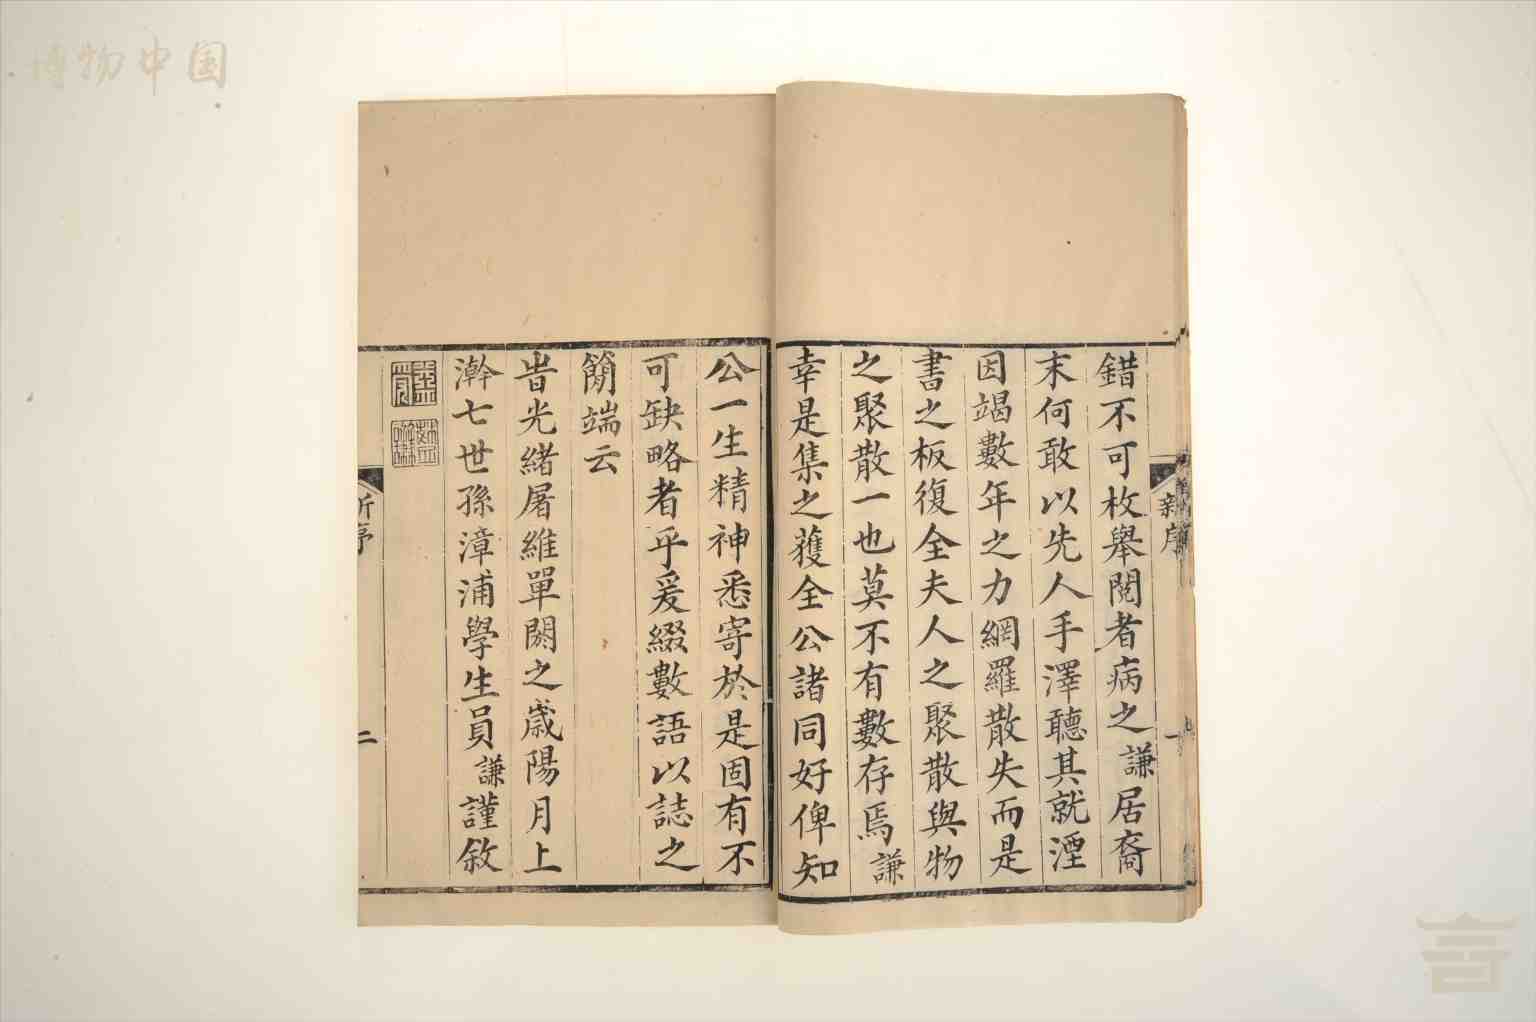 博物中国
新序
一
錯不可枚舉閱者病之謙居裔
末何敢以先人手澤聽其就湮
因竭數年之力網羅散失而是
書之板復全夫人之聚散與物
之聚散一也莫不有數存焉謙
幸是集之獲全公諸同好俾知
公一生精神悉寄於是固有不
可缺略者乎爰綴數語以誌之
簡端云
旹光緒屠維單閼之歲陽月上
澣七世孫漳浦學生員謙謹敘
新序
二